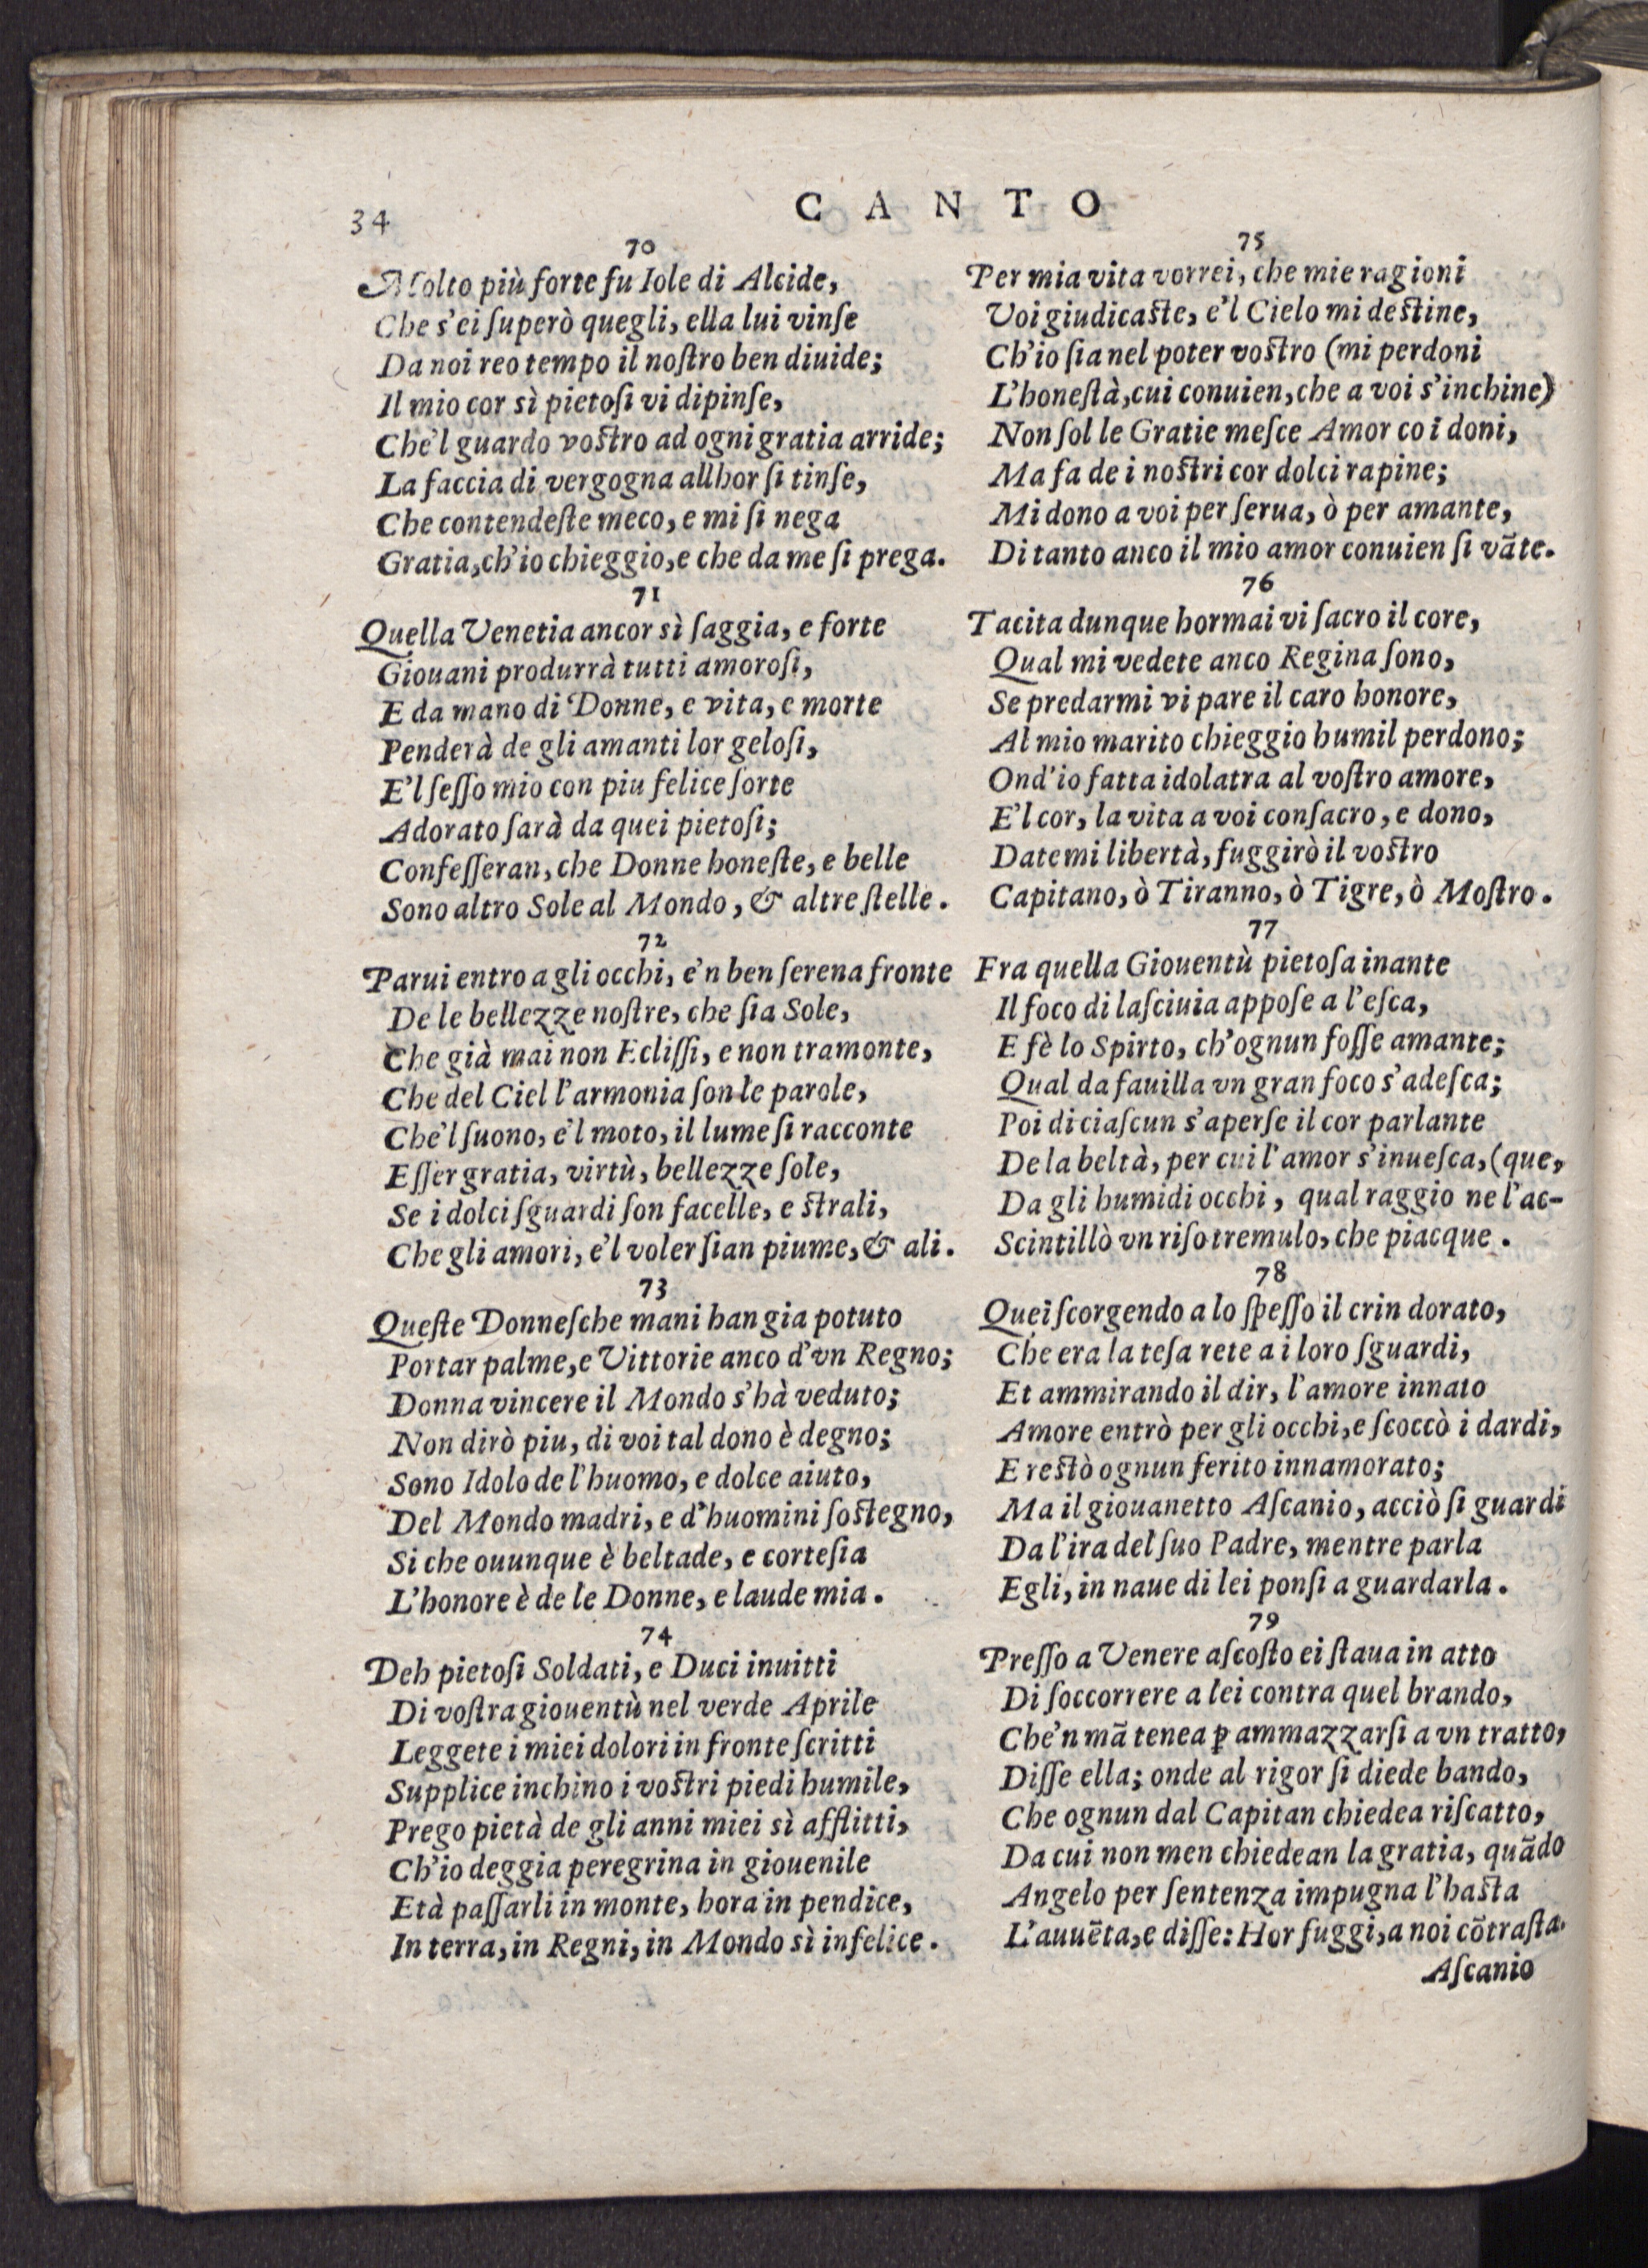 34
CANTO
70
Molto più forte fu Iole di Alcide,
Che s'ei ſuperò quegli, ella lui vinſe
Da noi reo tempo il noſtro ben diuide;
Il mio cor sì pietoſi vi dipinſe,
Che'l guardo voſtro ad ogni gratia arride;
La faccia di vergogna allhor ſi tinſe,
Che contendeſte meco, e mi ſi nega
Gratia, ch'io chieggio, e che da me ſi prega.
71
Quella Venetia ancor sì ſaggia, e forte
Giouani produrrà tutti amoroſi,
E da mano di Donne, e vita, e morte
Penderà de gli amanti lor geloſi,
E'l ſeſſo mio con piu felice ſorte
Adorato ſarà da quei pietoſi;
Confeſſeran, che Donne honeſte, e belle
Sono altro Sole al Mondo, & altre ſtelle.
72
Parui entro a gli occhi, e'n ben ſerena fronte
De le bellezze noſtre, che ſia Sole,
Che già mai non Ecliſſi, e non tramonte,
Che del Ciel l'armonia ſon le parole,
Che'l ſuono, e'l moto, il lume ſi racconte
Eſſer gratia, virtù, bellezze ſole,
Se i dolci ſguardi ſon facelle, e ſtrali,
Che gli amori, e'l voler ſian piume, & ali.
73
Queſte Donneſche mani han gia potuto
Portar palme, e Vittorie anco d'vn Regno;
Donna vincere il Mondo s'hà veduto;
Non dirò piu, di voi tal dono è degno;
Sono Idolo de l'huomo, e dolce aiuto,
Del Mondo madri, e d'huomini ſoſtegno,
Si che ouunque è beltade, e corteſia
L'honore è de le Donne, e laude mia.
74
Deh pietoſi Soldati, e Duci inuitti
Di voſtra giouentù nel verde Aprile
Leggete i miei dolori in fronte ſcritti
Supplice inchino i voſtri piedi humile,
Prego pietà de gli anni miei sì afflitti,
Ch'io deggia peregrina in giouenile
Età paſſarli in monte, hora in pendice,
In terra, in Regni, in Mondo sì infelice.
75
Per mia vita vorrei, che mie ragioni
Voi giudicaſte, e'l Cielo mi deſtine,
Ch'io ſia nel poter voſtro (mi perdoni
L'honeſtà, cui conuien, che a voi s'inchine)
Non ſol le Gratie meſce Amor co i doni,
Ma fa de i noſtri cor dolci rapine;
Mi dono a voi per ſerua, ò per amante,
Di tanto anco il mio amor conuien ſi vāte.
76
Tacita dunque hormai vi ſacro il core,
Qual mi vedete anco Regina ſono,
Se predarmi vi pare il caro honore,
Al mio marito chieggio humil perdono;
Ond'io fatta idolatra al voſtro amore,
E'l cor, la vita a voi conſacro, e dono,
Datemi libertà, fuggirò il voſtro
Capitano, ò Tiranno, ò Tigre, ò Moſtro.
77
Fra quella Giouentù pietoſa inante
Il foco di laſciuia appoſe a l'eſca,
E fè lo Spirto, ch'ognun foſſe amante;
Qual da fauilla vn gran foco s'adeſca;
Poi di ciaſcun s'aperſe il cor parlante
De la beltà, per cui l'amor s'inueſca, (que,
Da gli humidi occhi, qual raggio ne l'ac-
Scintillò vn riſo tremulo, che piacque.
78
Quei ſcorgendo a lo ſpeſſo il crin dorato,
Che era la teſa rete a i loro ſguardi,
Et ammirando il dir, l'amore innato
Amore entrò per gli occhi, e ſcoccò i dardi,
E reſtò ognun ferito innamorato;
Ma il giouanetto Aſcanio, acciò ſi guardi
Da l'ira del ſuo Padre, mentre parla
Egli, in naue di lei ponſi a guardarla.
79
Preſſo a Venere aſcoſto ei ſtaua in atto
Di ſoccorrere a lei contra quel brando,
Che'n mā tenea ꝑ ammazzarſi a vn tratto,
Diſſe ella; onde al rigor ſi diede bando,
Che ognun dal Capitan chiedea riſcatto,
Da cui non men chiedean la gratia, quādo
Angelo per ſentenza impugna l'haſta
L'auuēta, e diſſe: Hor fuggi, a noi cōtraſta.
Aſcanio